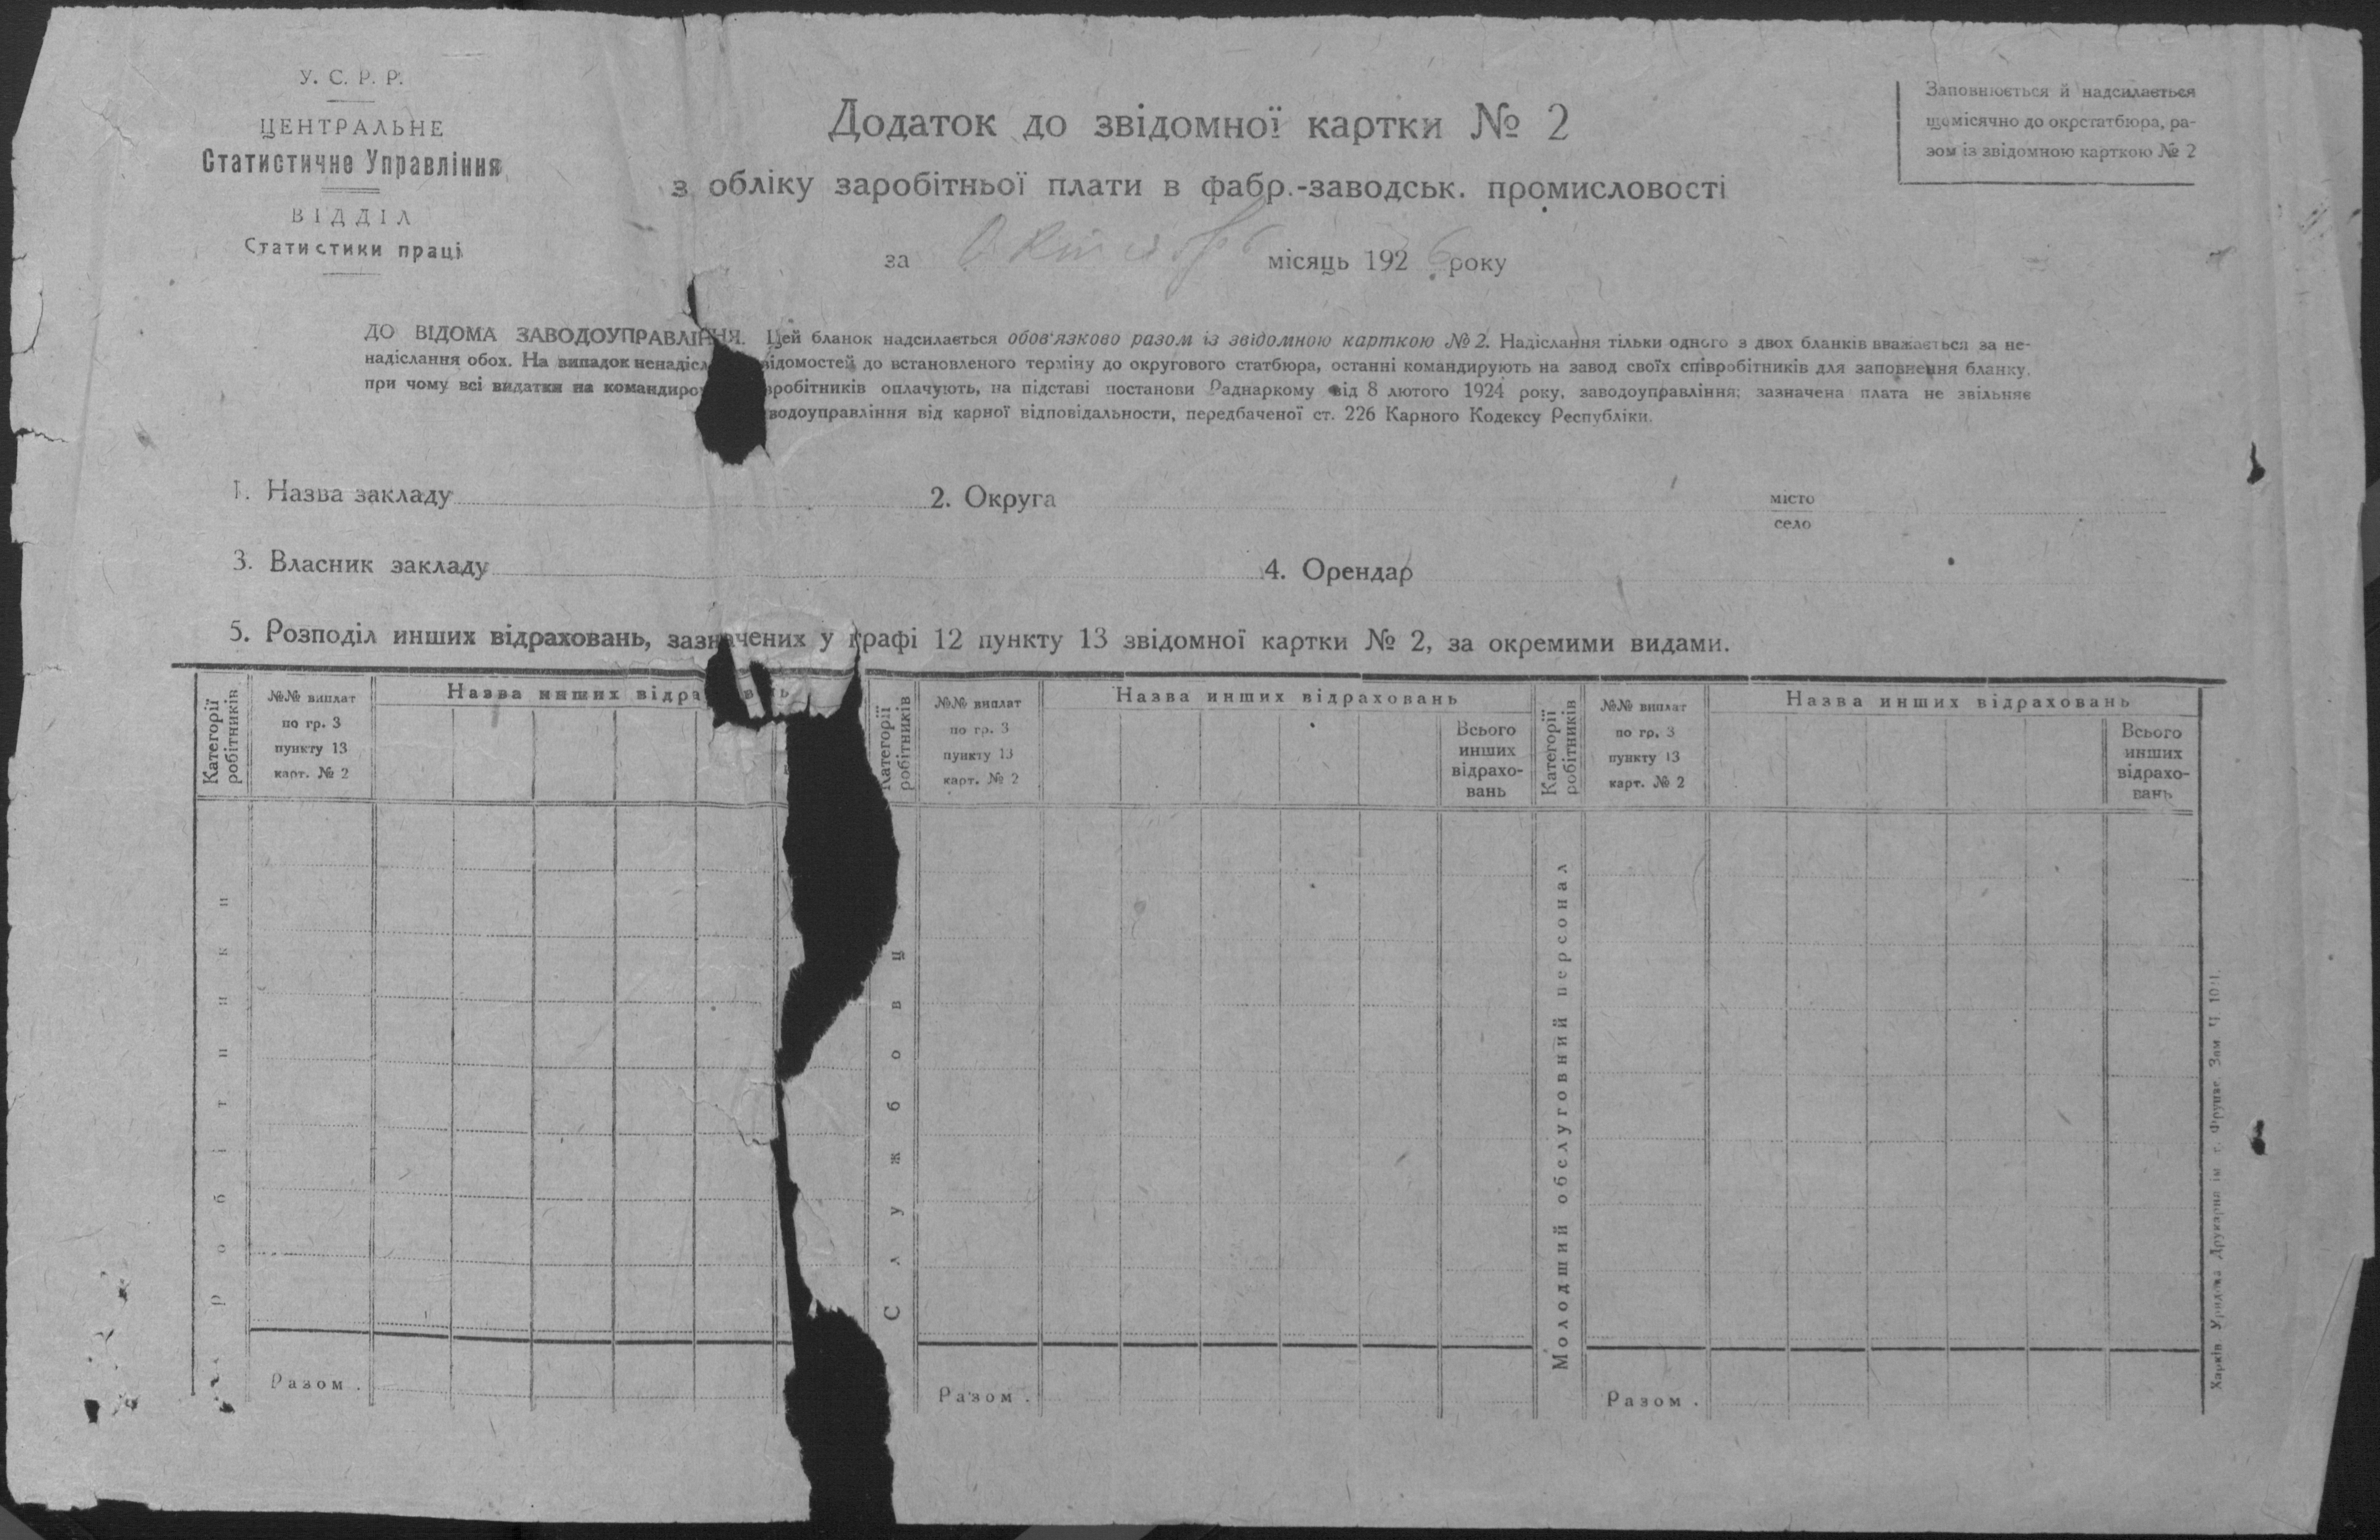 У. С. Р. Р.
ЦЕНТРАЛЬНЕ
Статистичне Управління
ВІДДІЛ
Статистики праці
Додаток до звідомної картки № 2
з обліку заробітньої плати в фабр.-заводськ. промисловості
за Октябрь місяць 1926 року
Заповнюється й надсилається
щомісячно до окрстатбюра, ра-
зом із звідомною карткою № 2
ДО ВІДОМА ЗАВОДОУПРАВЛІННЯ. Цей бланк надсилається обов'язково разом із звідомною карткою № 2. Надіслання тільки одного з двох бланків вважається за не-
надіслання обох. На випадок ненадісл відомостей до встановленого терміну до округового статбюра, останні командирують на завод своїх співробітників для заповнення бланку,
при чому всі видатки на командиро вробітників оплачують, на підставі постанови Раднаркому від 8 лютого 1924 року, заводоуправління; зазначена плата не звільняє
водоуправління від карної відповідальности, передбаченої ст. 226 Карного Кодексу Республіки.
1. Назва закладу 2. Округа місто
село
3. Власник закладу 4. Орендар
5. Розподіл инших відраховань, зазначених у графі 12 пункту 13 звідомної картки № 2, за окремими видами.
Категорії робітників
№№ виплат
по гр. 3
пункту 13
карт. № 2
Назва инших відра в ь
Робітники
Разом .
Категорії робітників
№№ виплат
по гр. 3
пункту 13
карт. № 2
Назва инших відраховань
Всього
инших
відрахо-
вань
Службовц
Разом .
Категорії робітників
№№ виплат
по гр. 3
пункту 13
карт. № 2
Назва инших відраховань
Всього
инших
відрахо-
вань
Молодший обслуговний персонал
Разом .
Харків Друкарня ім. Фрунзе Зам Ч